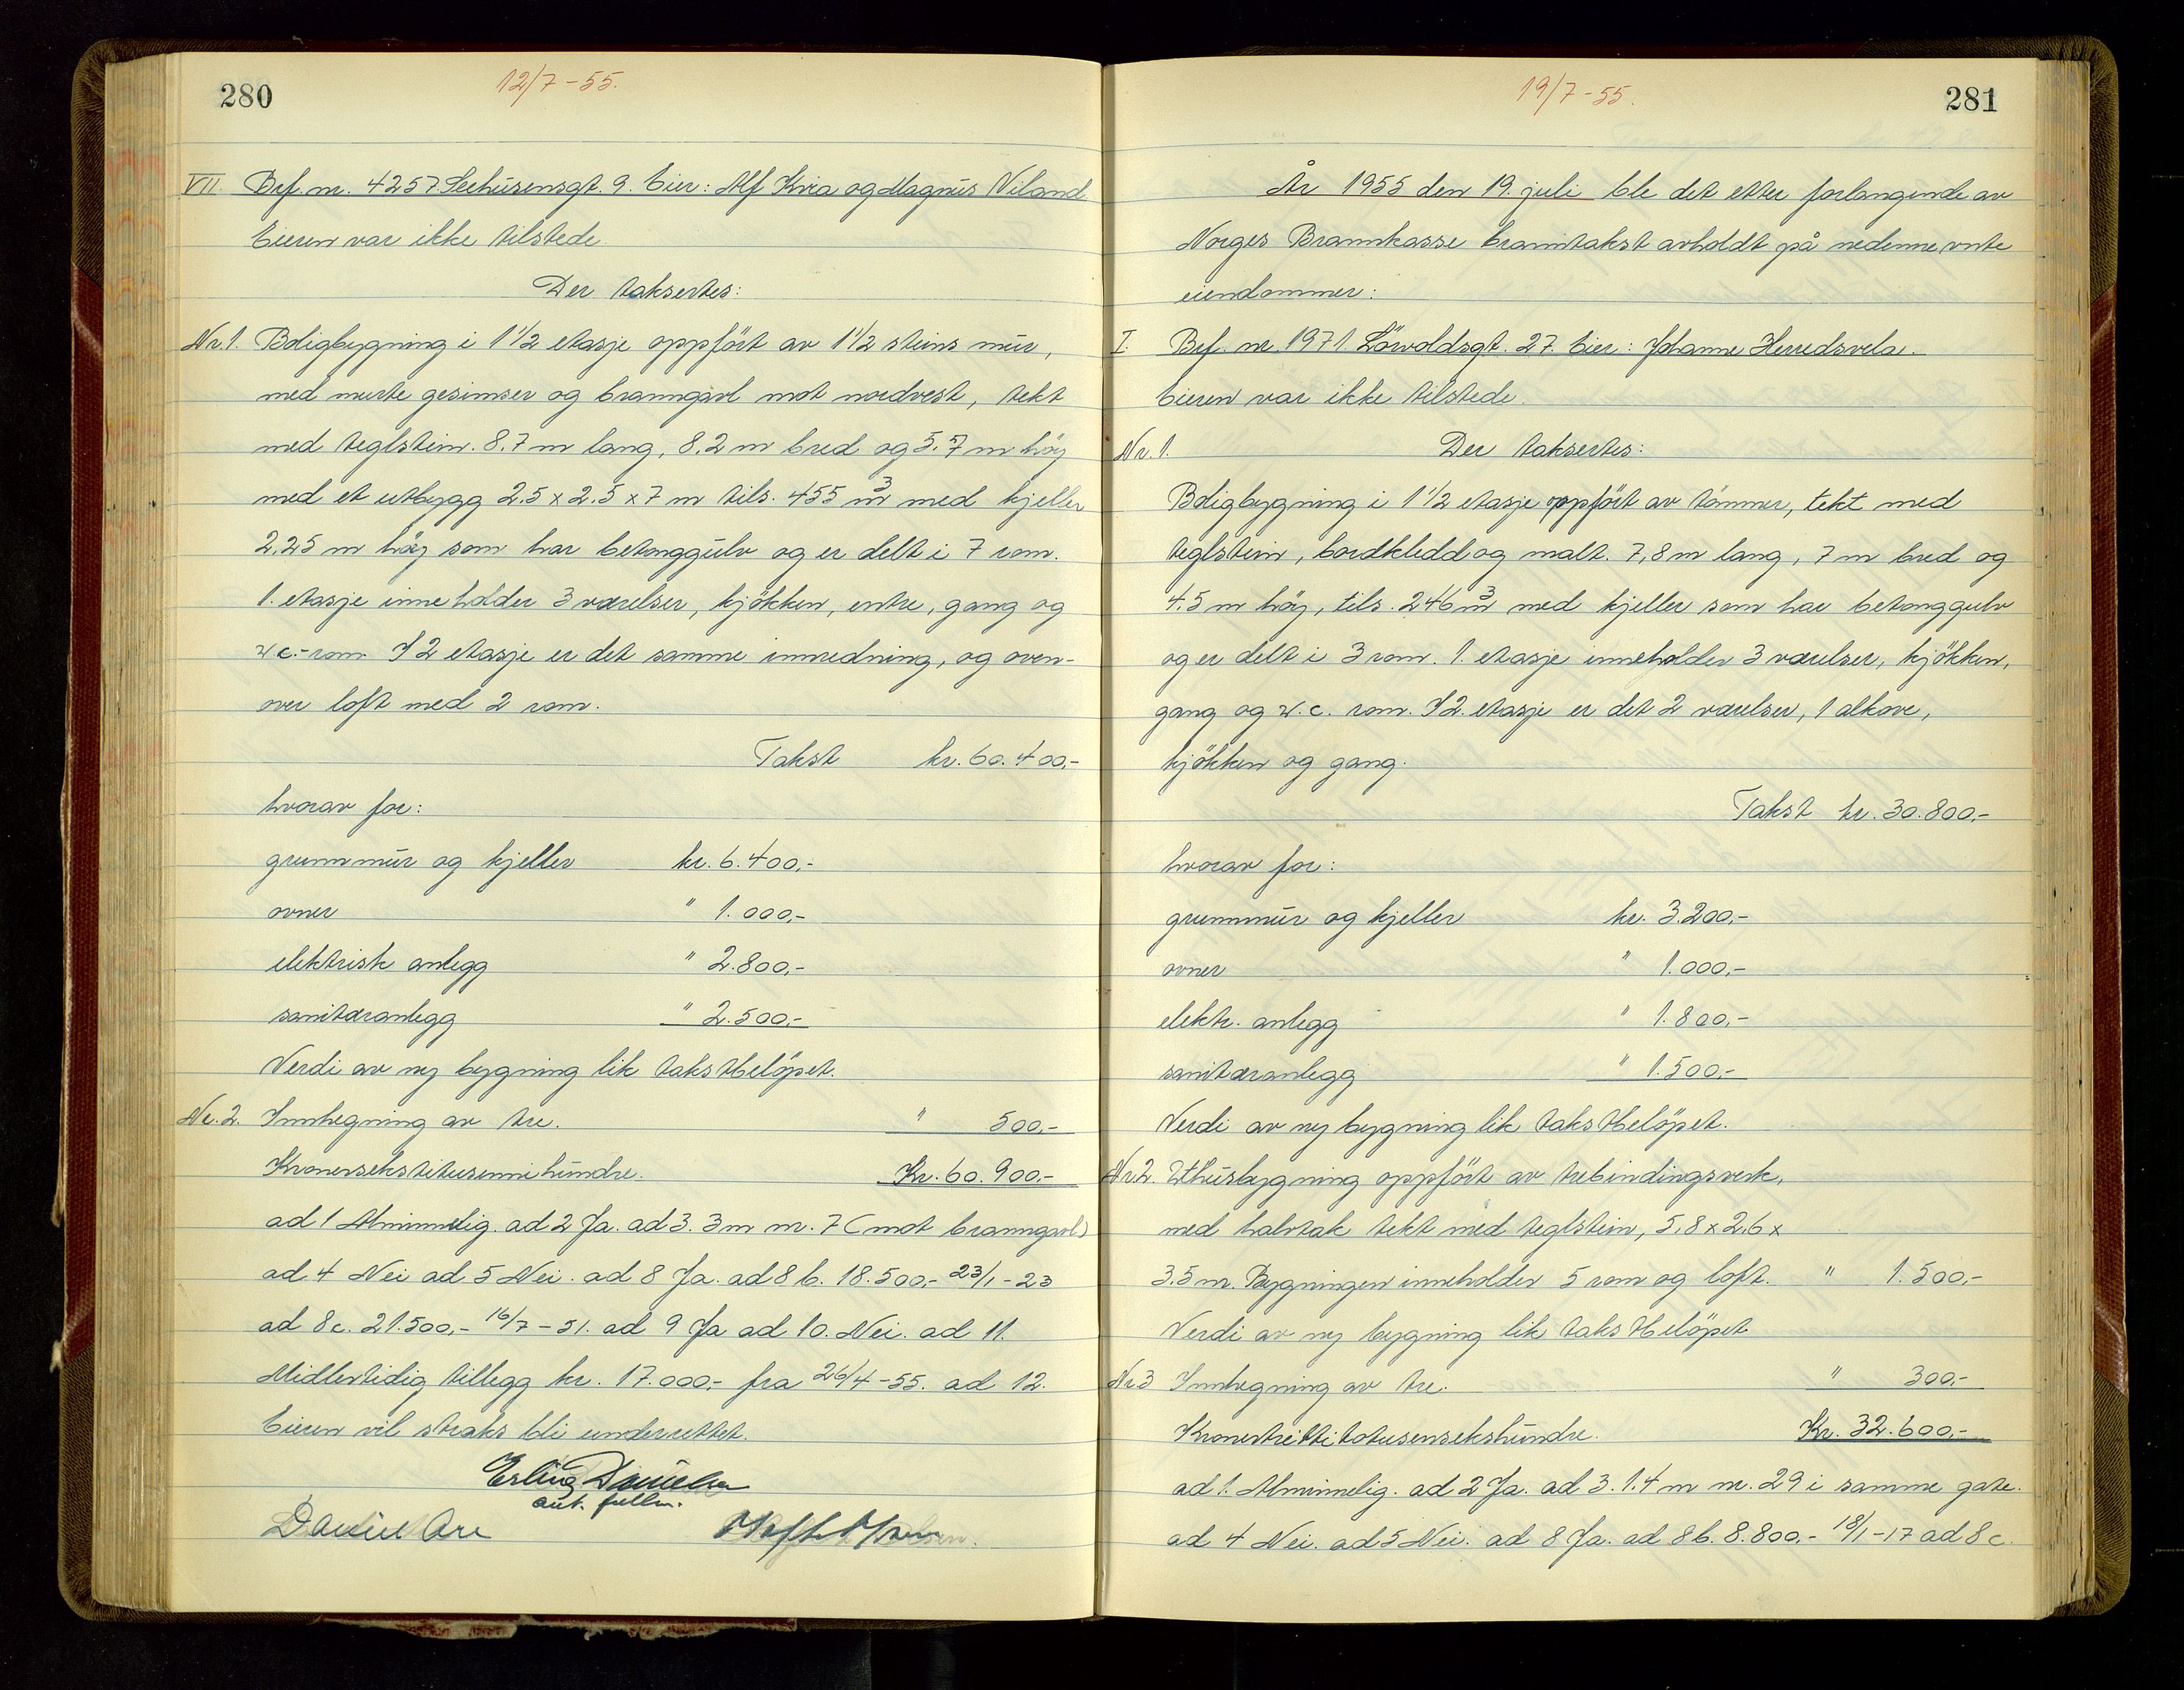 280
12/7-55.
VII. Brf. nr. 4257. Seehusensgt. 9. Eier: Alf Kvia og Magnus Niland
Eieren var ikke tilstede.
Der takseres:
Nr. 1. Boligbygning i 1 1/2 etasje oppført av 1 1/2 steins mur,
med murte gesimser og branngavl mot nordvest, tekt
med teglstein. 8.7 m lang, 8.2 m bred og 5.7 m høy
med et utbygg 2.5 x 2.5 x 7 m tils. 455 m³ med kjeller
2.25 m høy som har betonggulv og er delt i 7 rom.
1. etasje inneholder 3 værelser, kjökken, entre, gang og
w c.-rom I 2 etasje er det samme innredning, og oven-
over loft med 2 rom.
Takst kr. 60.400,-
hvorav for:
grunnmur og kjeller kr. 6.400,-
ovner " 1.000,-
elektrisk anlegg " 2.800,-
sanitæranlegg " 2.500,-
Verdi av ny bygning lik takstbelöpet.
Nr. 2. Innhegning av tre. " 500,-
Kronersekstitusennihundre. Kr. 60.900,-
ad 1 Alminnelig. ad 2 Ja. ad 3. 3 m nr. 7 (mot branngavl)
ad 4 Nei ad 5 Nei. ad 8 Ja. ad 8 b. 18.500,- 23/1-23
ad 8c. 21.500,- 16/7-51. ad 9 Ja ad 10. Nei. ad 11.
Midlertidig tillegg kr. 17.000,- fra 26/4-55. ad 12.
Eieren vil straks bli underrettet.
Erling Danielsen
aut. fullm.
Daniel Are
281
19/7-55.
År 1955 den 19. juli ble det etter forlangende av
Norges Brannkasse branntakst avholdt på nedennevnte
eiendommer:
I. Brf. nr. 1971. Lövoldsgt. 27. Eier: Johanne Herredsvela.
Eieren var ikke tilstede.
Nr. 1. Der taksertes:
Boligbygning i 1 1/2 etasje oppfört av tömmer, tekt med
teglstein, bordkledd og malt. 7,8 m lang, 7 m bred og
4.5 m höy, tils. 246 m³ med kjeller som har betonggulv
og er delt i 3 rom. 1. etasje inneholder 3 værelser, kjökken,
gang og w.c. rom. I 2. etasje er det 2 værelser, 1 alkove,
kjökken og gang.
Takst kr. 30.800,-
hvorav for:
grunnmur og kjeller kr. 3.200,-
ovner " 1.000,-
elektr. anlegg " 1.800,-
sanitæranlegg " 1.500,-
Verdi av ny bygning lik takstbelöpet.
Nr. 2. Uthusbygning oppfört av trebindingsverk,
med halvtak tekt med teglstein, 5,8 x 2,6 x
3.5 m. Bygningen inneholder 5 rom og loft. " 1.500,-
Verdi av ny bygning lik takstbelöpet
Nr. 3 Innhegning av tre. " 300,-
Kronertrettitotusensekshundre. Kr. 32.600,-
ad 1. Alminnelig. ad 2 Ja. ad 3. 1.4 m nr. 29 i samme gate.
ad 4 Nei. ad 5 Nei. ad 8 Ja. ad 8b. 8.800,- 18/1-17 ad 8 c.